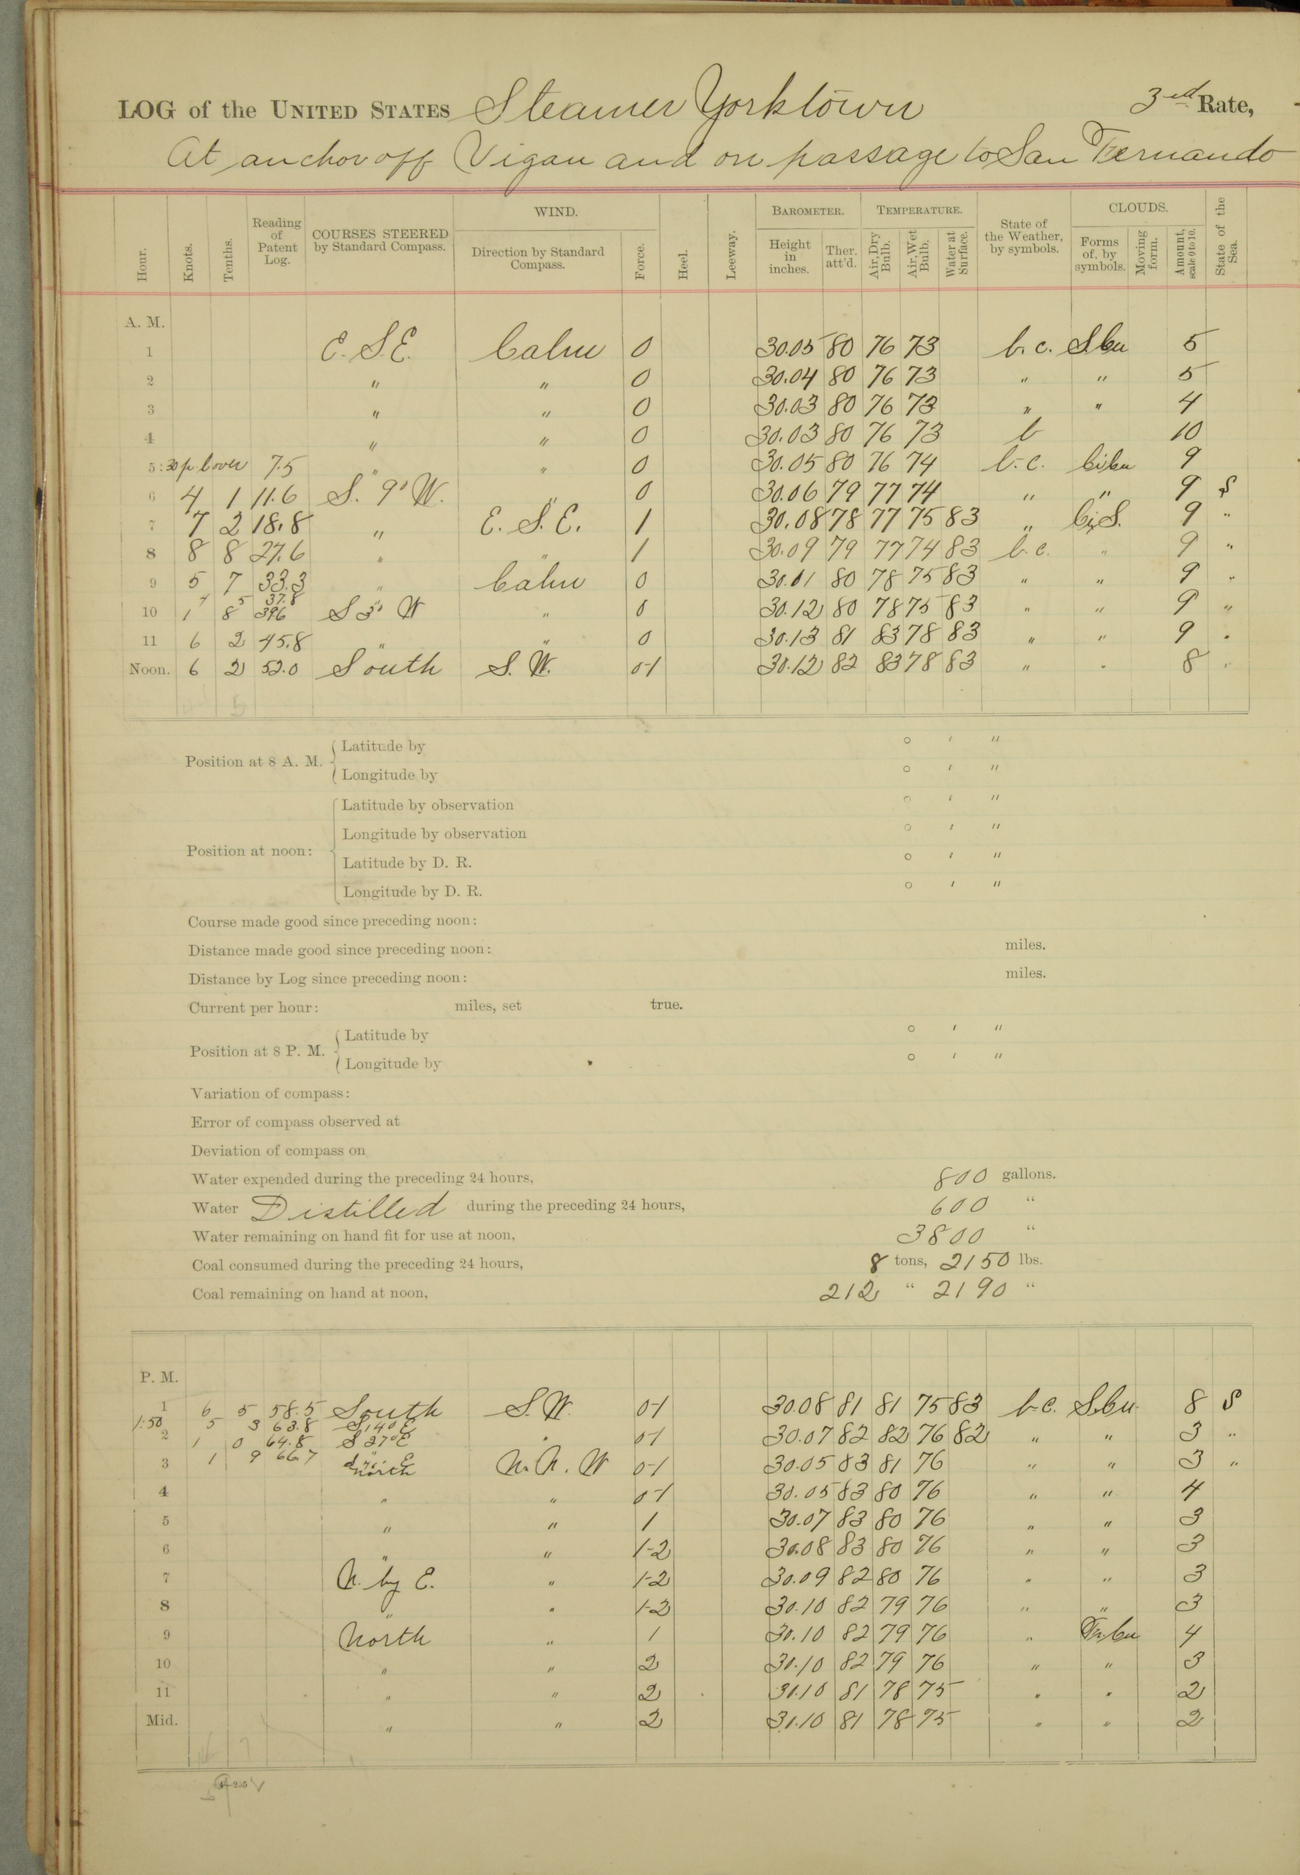 LOG of the UNITED STATES Steamer Yorktown 3rd Rate,
At anchor off Vigan and on passage to San Fernando
Hour. Knots. Tenths. Reading of Patent Log. COURSES STEERED by Standard Compass. WIND. Direction by Standard Compass. Force. Heel. Leeway. BAROMETER. Height in inches. Ther. att'd. TEMPERATURE. Air, Dry Bulb. Air, Wet Bulb. Water at Surface. State of the Weather, by symbols. CLOUDS. Forms of, by symbols. Moving form. Amount, scale 0 to 10. State of the Sea.
A. M.
1 E. S. E. Calm 0 30.05 80 76 73 b. c. S.Cu 5
2 " " 0 30.04 80 76 73 " " 5
3 " " 0 30.03 80 76 73 " " 4
4 " " 0 30.03 80 76 73 b 10
5:30 p. l. over 7.5 " " 0 30.05 80 76 74 b. c. Ci.Cu 9
6 4 1 11.6 S. 9° W. " 0 30.06 79 77 74 " " 9 S
7 7 2 18.8 " E. S. E. 1 30.08 78 77 75 83 " Ci.S. 9 "
8 8 8 27.6 " " 1 30.09 79 77 74 83 b. c. " 9 "
9 5 7 33.3 " Calm 0 30.11 80 78 75 83 " " 9 "
4 5 37.8
10 1 8 39.6 S 3° W " 0 30.12 80 78 75 83 " " 9 "
11 6 2 45.8 " " 0 30.13 81 83 78 83 " " 9 "
Noon. 6 2 52.0 South S. W. 0-1 30.12 82 83 78 83 " " 8 "
Position at 8 A. M. Latitude by ° ' "
Longitude by ° ' "
Position at noon: Latitude by observation ° ' "
Longitude by observation ° ' "
Latitude by D. R. ° ' "
Longitude by D. R. ° ' "
Course made good since preceding noon:
Distance made good since preceding noon: miles.
Distance by Log since preceding noon: miles.
Current per hour: miles, set true.
Position at 8 P. M. Latitude by ° ' "
Longitude by ° ' "
Variation of compass:
Error of compass observed at
Deviation of compass on
Water expended during the preceding 24 hours, 800 gallons.
Water Distilled during the preceding 24 hours, 600 "
Water remaining on hand fit for use at noon, 3800 "
Coal consumed during the preceding 24 hours, 8 tons, 2150 lbs.
Coal remaining on hand at noon, 212 " 2190 "
P. M.
1 6 5 58.5 South S. W. 0-1 30.08 81 81 75 83 b. c. S.Cu. 8 S
1:50 5 3 63.8 S 14° E
2 1 0 64.8 S 37° E " 0-1 30.07 82 82 76 82 " " 3 "
3 1 9 66.7 North N. N. W 0-1 30.05 83 81 76 " " 3 "
4 " " 0-1 30.05 83 80 76 " " 4
5 " " 1 30.07 83 80 76 " " 3
6 " " 1-2 30.08 83 80 76 " " 3
7 N. by E. " 1-2 30.09 82 80 76 " " 3
8 " " 1-2 30.10 82 79 76 " " 3
9 North " 1 30.10 82 79 76 " Fr.Cu 4
10 " " 2 30.10 82 79 76 " " 3
11 " " 2 30.10 81 78 75 " " 2
Mid. " " 2 30.10 81 78 75 " " 2